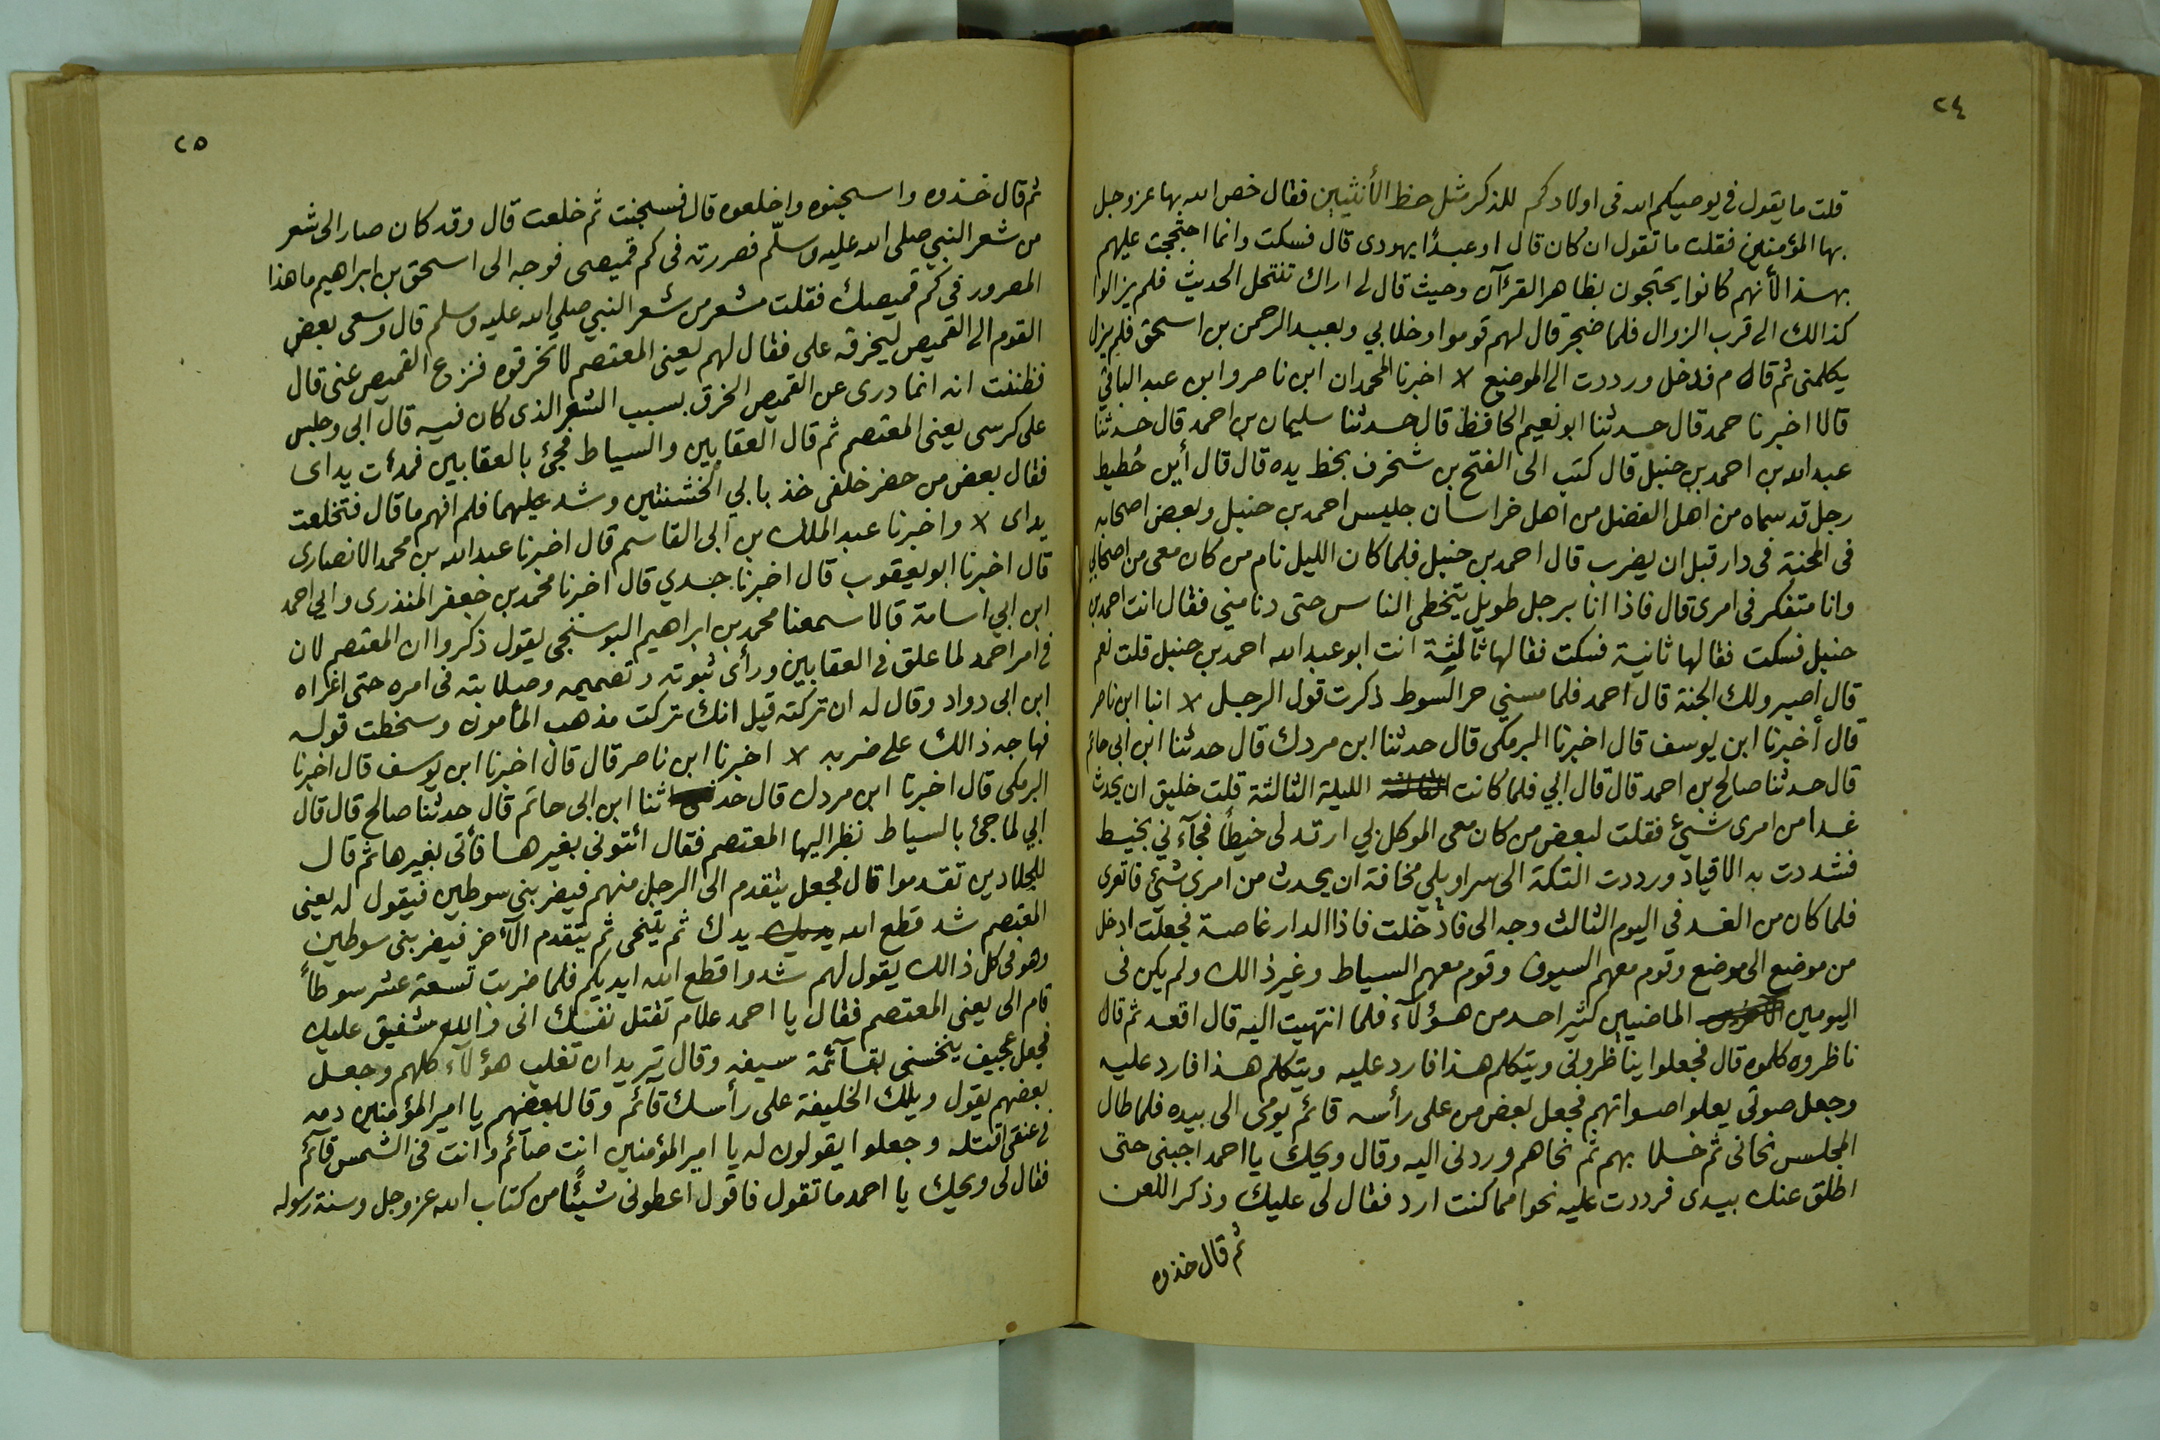 ٢٤
قلت ما يقول في يوصيكم الله في اولادكم للذكر مثل حظ الأنثيين فقال خص الله بها عز وجل
بها المؤمنين فقلت ما تقول ان كان قال او عبدًا يهودى قال فسكت وانما احتججت عليهم
بهذا لأنهم كانوا يحتجون بظاهر القرءآن وحيث قال لى اراك تنتحل الحديث فلم يزالوا
كذالك الى قرب الزوال فلما ضجر قال لهم قوموا وخلا بي وبعبد الرحمن بن اسحق فلم يزل
يكلمنى ثم قال م فدخل ورددت الى الموضع لا اخبرنا المحمدان ابن ناصر وابن عبد الباقي
قالا اخبرنا حمد قال حدثنا ابو نعيم الحافظ قال حدثنا سليمان بن احمد قال حدثنا
عبد الله بن احمد بن حنبل قال كتب الى الفتح بن شخرف بخط يده قال قال أبن حُطيط
رجل قد سماه من اهل الفضل من اهل خراسان جليس احمد بن حنبل وبعض اصحابه
فى المحنة فى دار قبل ان يضرب قال احمد بن حنبل فلما كان الليل نام من كان معى من اصحابي
وانا متفكر فى امرى قال فاذا انا برجل طويل يتخطى الناس حتى دنا منى فقال انت احمد بن
حنبل فسكت فقالها ثانية فسكت فقالها ثالثة انت ابو عبد الله احمد بن حنبل قلت نعم
قال اصبر ولك الجنة قال احمد فلما مسني حر السوط ذكرت قول الرجل لا انبا ابن ناصر
قال أخبرنا ابن يوسف قال اخبرنا البرمكى قال حدثنا ابن مردك قال حدثنا ابن ابى حاتم
قال حدثنا صالح بن احمد قال قال ابي فلما كانت الليلة الثالثة قلت خليق ان يحدث
غدا من امرى شيئ فقلت لبعض من كان معى الموكل بي ارتد لى خيطًا فجآءني بخيط
فشددت به الاقياد ورددت التكة الى سراويلي مخافة ان يحدث من امرى شيئ فاتعرى
فلما كان من الغد فى اليوم الثالث وجه الى فادخلت فاذا الدار غاصة فجعلت ادخل
من موضع الى موضع وقوم معهم السيوف وقوم معهم السياط وغير ذالك ولم يكن فى
اليومين الماضيين كثير احد من هؤلآء فلما انتهيت اليه قال اقعد ثم قال
ناظروه كلموه قال فجعلوا يناظرونى ويتكلم هذا فارد عليه ويتكلم هذا فارد عليه
وجعل صوتى يعلوا اصواتهم فجعل بعض من على رأسه قائم يومى الى بيده فلما طال
المجلس نحانى ثم خلا بهم ثم نحاهم وردنى اليه وقال ويحك يا احمد اجبنى حتى
اطلق عنك بيدى فرددت عليه نحوا مما كنت ارد فقال لى عليك وذكر اللعن
ثم قال خذوه
٢٥
ثم قال خذوه واسحبوه واخلعوه قال فسحبت ثم خلعت قال وقد كان صار الى شعر
من شعر النبي صلى الله عليه وسلّم فصررته فى كم قميصى فوجه الى اسحق بن ابراهيم ما هذا
المصرور فى كم قميصك فقلت شعر من شعر النبي صلي الله عليه وسلم قال وسعى بعض
القوم الى القميص ليخرقه على فقال لهم يعنى المعتصم لا تخرقوه فنزع القميص عنى قال
فظننت انه انما درى عن القميص الخرق بسبب الشعر الذى كان فيه قال ابى وجلس
على كرسى يعنى المعتصم ثم قال العقابين والسياط فجئ بالعقابين فمدت يداى
فقال بعض من حضر خلفى خذ بابي الخشبتين وشد عليهما فلم افهم ما قال فتخلعت
يداى لا واخبرنا عبد الملك بن ابى القاسم قال اخبرنا عبد الله بن محمد الانصارى
قال اخبرنا ابو يعقوب قال اخبرنا جدي قال اخبرنا محمد بن جعفر المنذرى وابي احمد
ابن ابي اسامة قالا سمعنا محمد بن ابراهيم البوسنجى يقول ذكروا ان المعتصم لان
فى امر احمد لما علق فى العقابين ورأى ثبوته وتصميمه وصلابته فى امره حتى اغراه
ابن ابى دواد وقال له ان تركته قيل انك تركت مذهب المأمون وسخطت قوله
فهاجه ذالك على ضربه لا اخبرنا ابن ناصر قال قال اخبرنا ابن يوسف قال اخبرنا
البرمكى قال اخبرنا ابن مردك قال حدثنا ابن ابى حاتم قال حدثنا صالح قال قال
ابي لما جئ بالسياط نظر اليها المعتصم فقال ائتونى بغيرها فأتى بغيرها ثم قال
للجلادين تقدموا قال فجعل يتقدم الى الرجل منهم فيضربنى سوطين فيقول له يعنى
المعتصم شد قطع الله يدك ثم يتنحى ثم يتقدم الآخر فيضربنى سوطين
وهو فى كل ذالك يقول لهم شدوا قطع الله ايديكم فلما ضربت تسعة عشر سوطاً
قام الى يعنى المعتصم فقال يا احمد علام تقتل نفسك انى والله شفيق عليك
فجعل عجيف ينخسنى بقآئمة سيفه وقال تريد ان تغلب هؤلآء كلهم وجعل
بعضهم يقول ويلك الخليفة على رأسك قآئم وقال بعضهم يا امير المؤمنين دمه
فى عنقى اقتله وجعلوا يقولون له يا امير المؤمنين انت صآئم وانت فى الشمس قآئم
فقال لى ويحك يا احمد ما تقول فاقول اعطونى شيئًا من كتاب الله عز وجل وسنة رسوله